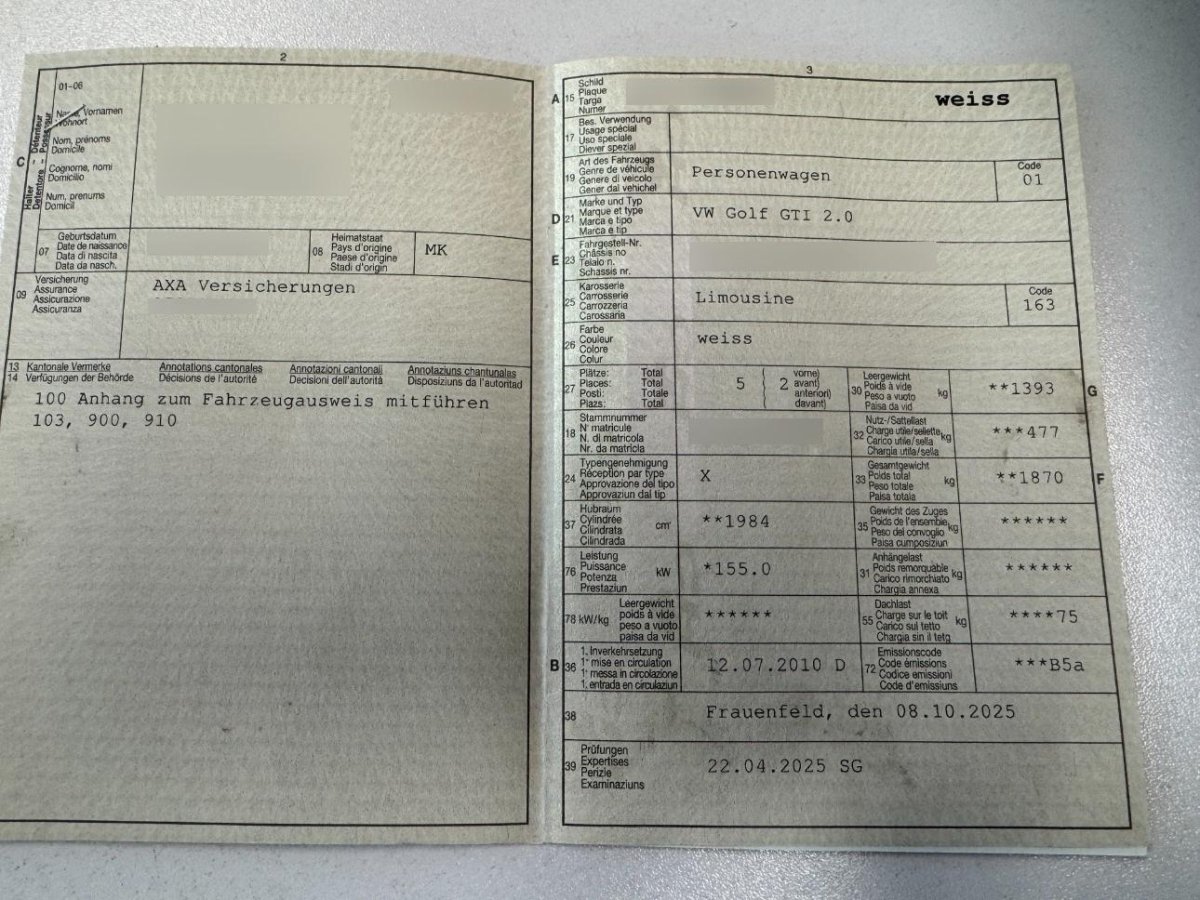 2
01-06
C
Halter Détenteur
Detentore Possessur
Name, Vornamen
Wohnort
Nom, prénoms
Domicile
Cognome, nomi
Domicilio
Num, prenums
Domicil
07
Geburtsdatum
Date de naissance
Data di nascita
Data da nasch.
08
Heimatstaat
Pays d'origine
Paese d'origine
Stadi d'origin
MK
09
Versicherung
Assurance
Assicurazione
Assicuranza
AXA Versicherungen
13 Kantonale Vermerke Annotations cantonales Annotazioni cantonali Annotaziuns chantunalas
14 Verfügungen der Behörde Décisions de l'autorité Decisioni dell'autorità Disposiziuns da l'autoritad
100 Anhang zum Fahrzeugausweis mitführen
103, 900, 910
3
A 15
Schild
Plaque
Targa
Numer
weiss
17
Bes. Verwendung
Usage spécial
Uso speciale
Diever spezial
19
Art des Fahrzeugs
Genre de véhicule
Genere di veicolo
Gener dal vehichel
Personenwagen
Code
01
D 21
Marke und Typ
Marque et type
Marca e tipo
Marca e tip
VW Golf GTI 2.0
E 23
Fahrgestell-Nr.
Châssis no
Telaio n.
Schassis nr.
25
Karosserie
Carrosserie
Carrozzeria
Carossaria
Limousine
Code
163
26
Farbe
Couleur
Colore
Colur
weiss
27
Plätze: Total
Places: Total
Posti: Totale
Plazs: Total
5 ( 2
vorne)
avant)
anteriori)
davant)
30
Leergewicht
Poids à vide
Peso a vuoto
Paisa da vid
kg
**1393
G
18
Stammnummer
N° matricule
N. di matricola
Nr. da matricla
32
Nutz-/Sattellast
Charge utile/sellette
Carico utile/sella
Chargia utila/sella
kg
***477
24
Typengenehmigung
Réception par type
Approvazione del tipo
Approvaziun dal tip
X
33
Gesamtgewicht
Poids total
Peso totale
Paisa totala
kg
**1870
F
37
Hubraum
Cylindrée
Cilindrata
Cilindrada
cm³
**1984
35
Gewicht des Zuges
Poids de l'ensemble
Peso del convoglio
Paisa cumposiziun
kg
******
76
Leistung
Puissance
Potenza
Prestaziun
kW
*155.0
31
Anhängelast
Poids remorquable
Carico rimorchiato
Chargia annexa
kg
******
78 kW/kg
Leergewicht
poids à vide
peso a vuoto
paisa da vid
******
55
Dachlast
Charge sur le toit
Carico sul tetto
Chargia sin il tetg
kg
****75
B 36
1. Inverkehrsetzung
1re mise en circulation
1a messa in circolazione
1. entrada en circulaziun
12.07.2010 D
72
Emissionscode
Code émissions
Codice emissioni
Code d'emissiuns
***B5a
38
Frauenfeld, den 08.10.2025
39
Prüfungen
Expertises
Perizie
Examinaziuns
22.04.2025 SG